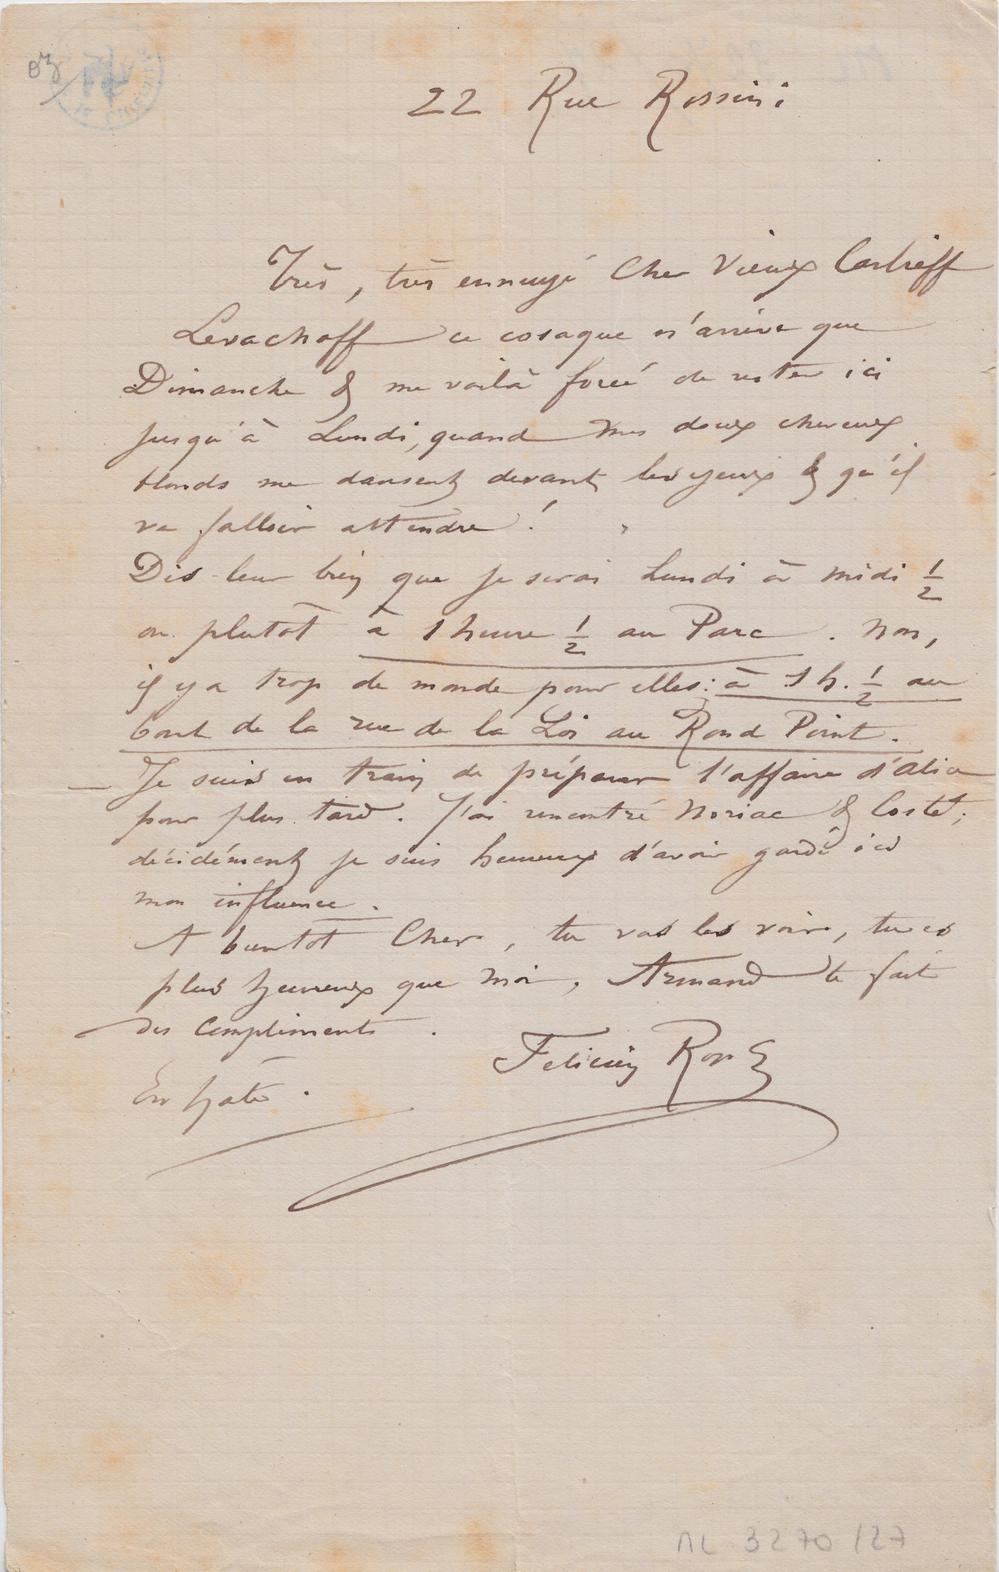 22 Rue Rossini
Très, très ennuyé Cher Vieux
Levachoff ce cosaque n'arrive que
Dimanche & me voilà forcé de rester ici
jusqu'à Lundi, quand mes doux cheveux
blonds me dansent devant les yeux & qu'il
va falloir attendre !
Dis-leur bien que je serai Lundi à midi 1/2
ou plutôt à 1 heure 1/2 au Parc. Non,
il y a trop de monde pour elles : à 1 h. 1/2 au
bout de la rue de la Loi au Rond Point.
– Je suis en train de préparer l'affaire d'
pour plus tard. J'ai rencontré Noriac & Costet,
décidément je suis heureux d'avoir gardé ici
mon influence.
A bientot Cher, tu vas les voir, tu es
plus heureux que moi, Armand te fait
des compliments.
Felicien Rops
En hâte.
ML 3270/27